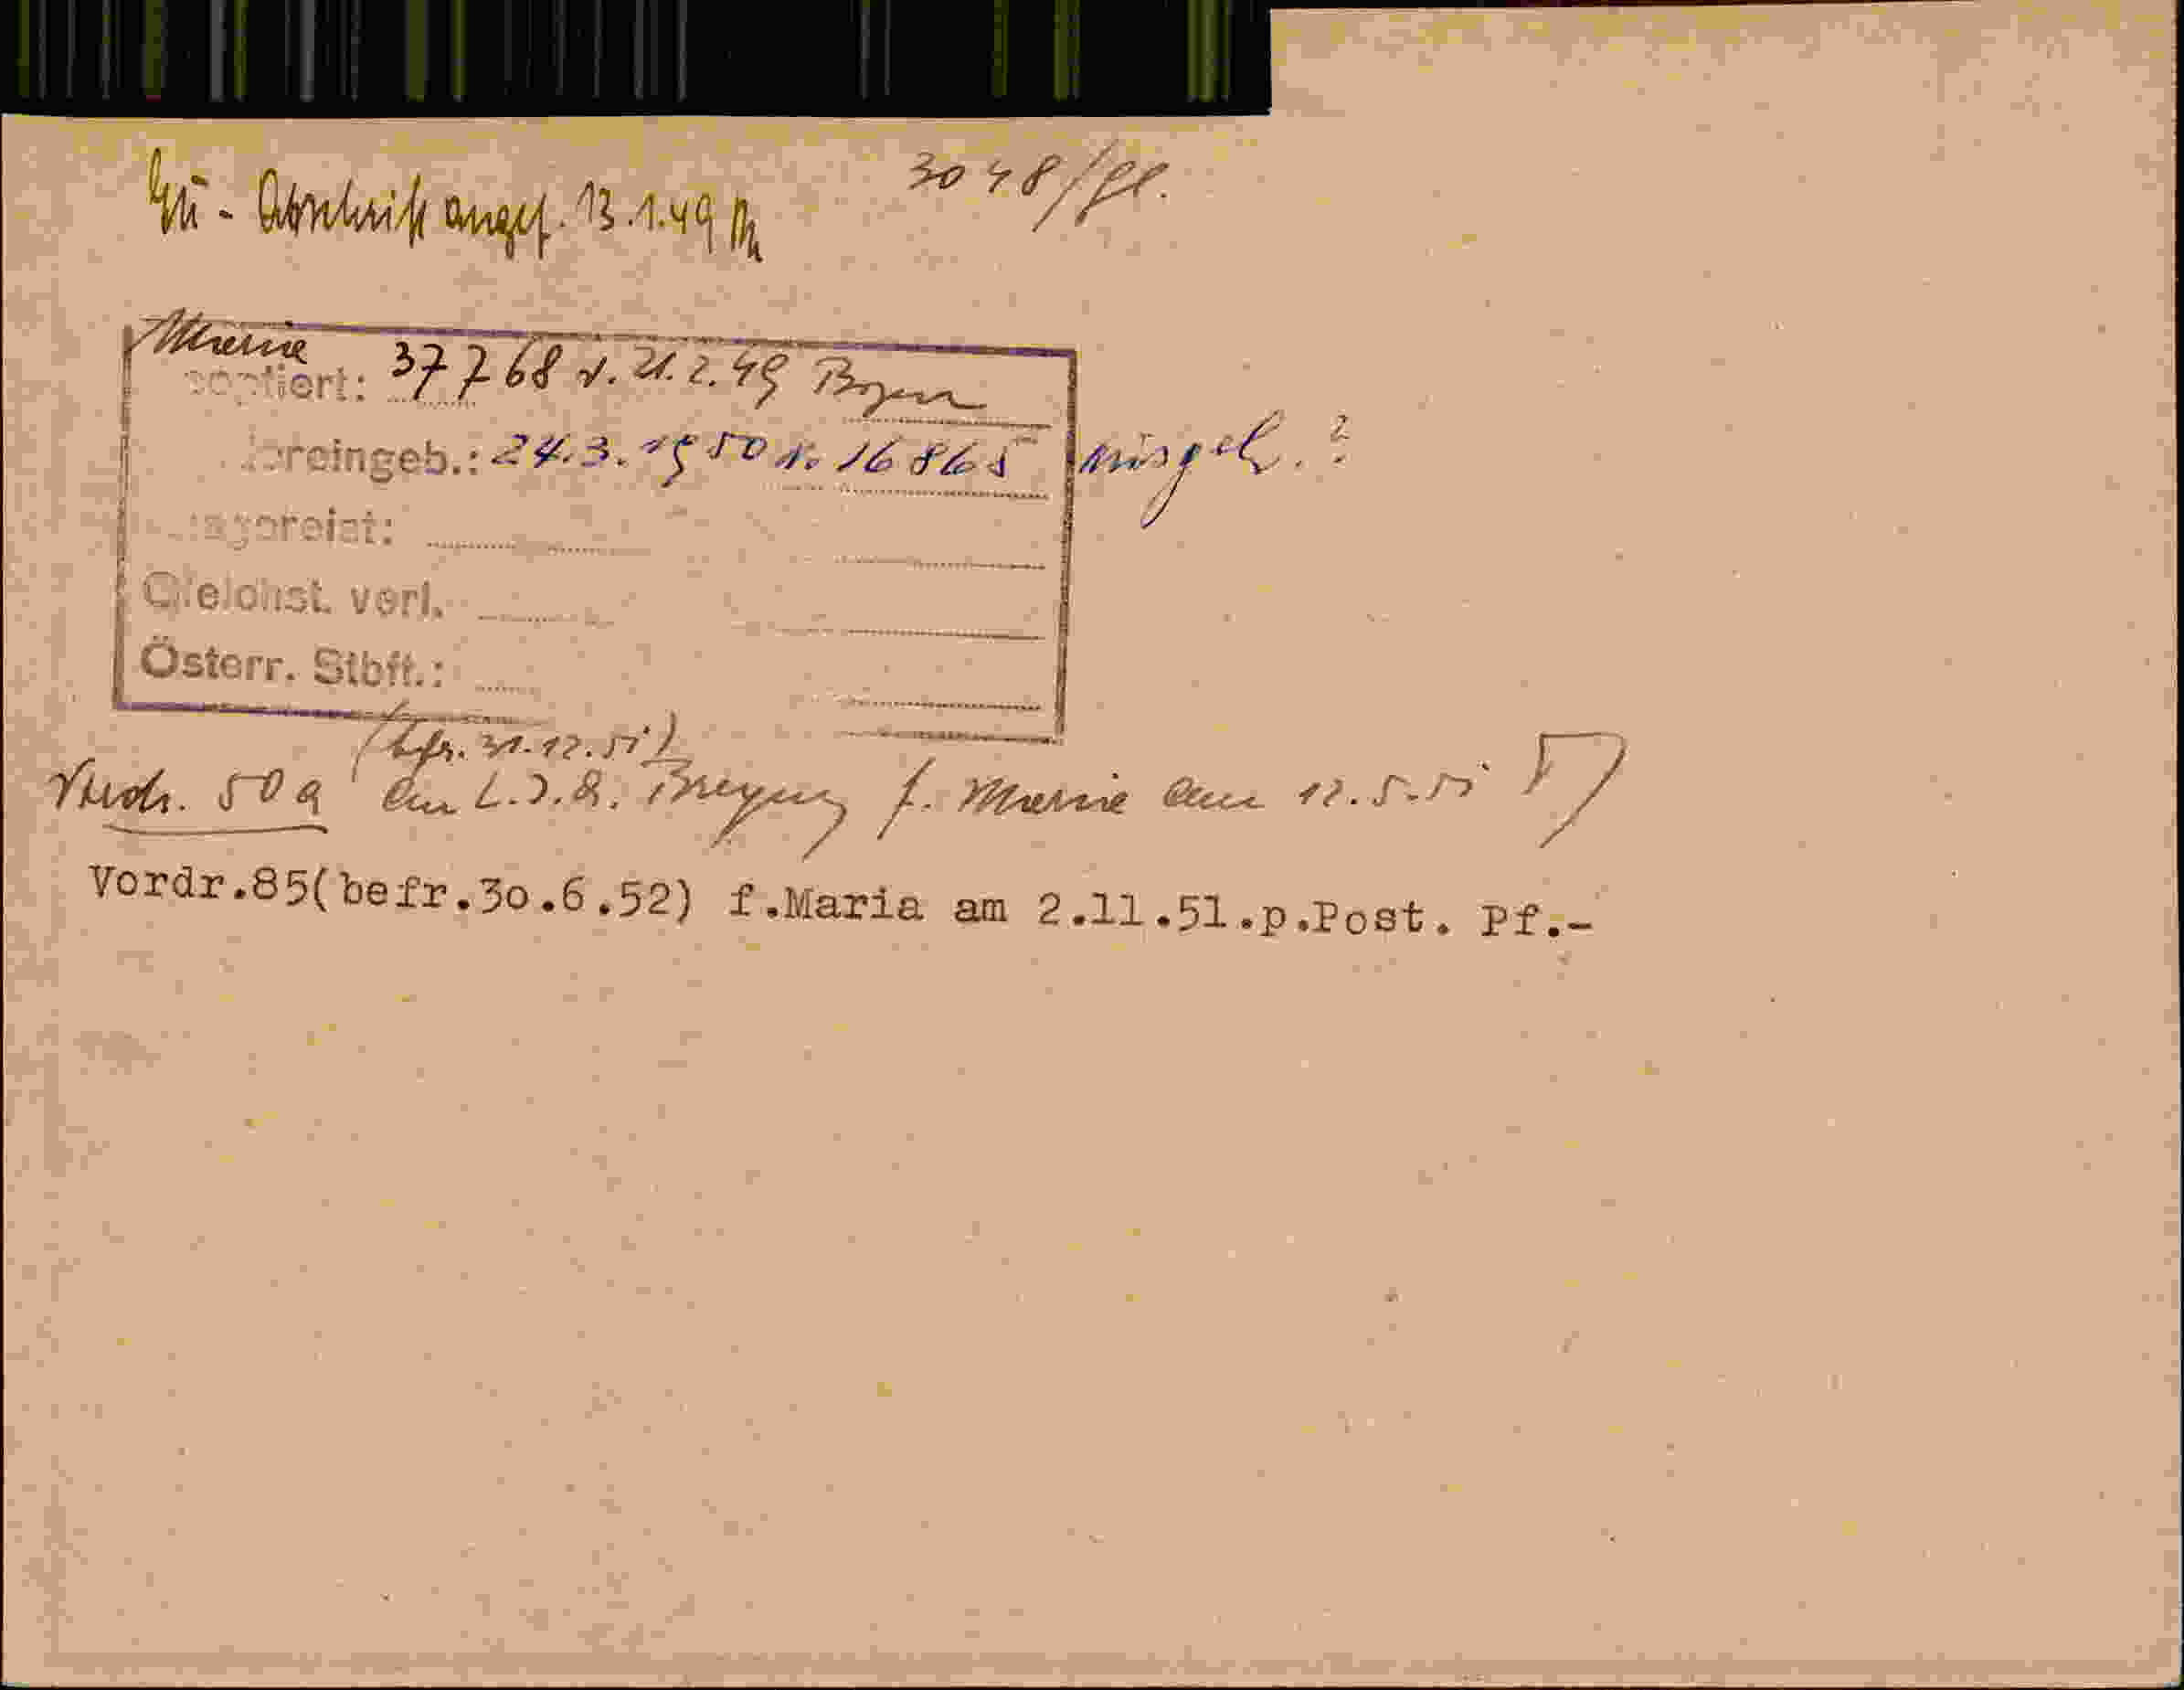 Eü - Abschrift angef. 13.1.49
3048/
Maria
37768 v. 21.2.49 Bozen
ereingeb.: 24.3.1950 N. 16865 ausgeh.?
Gleichst. verl.
Österr. Stbft.:
(befr. 31.12.51)
Vordr. 50a an L.J.A. Bregenz f. Maria am 12.5.51
Vordr.85(befr.30.6.52) f.Maria am 2.11.51.p.Post. Pf.-